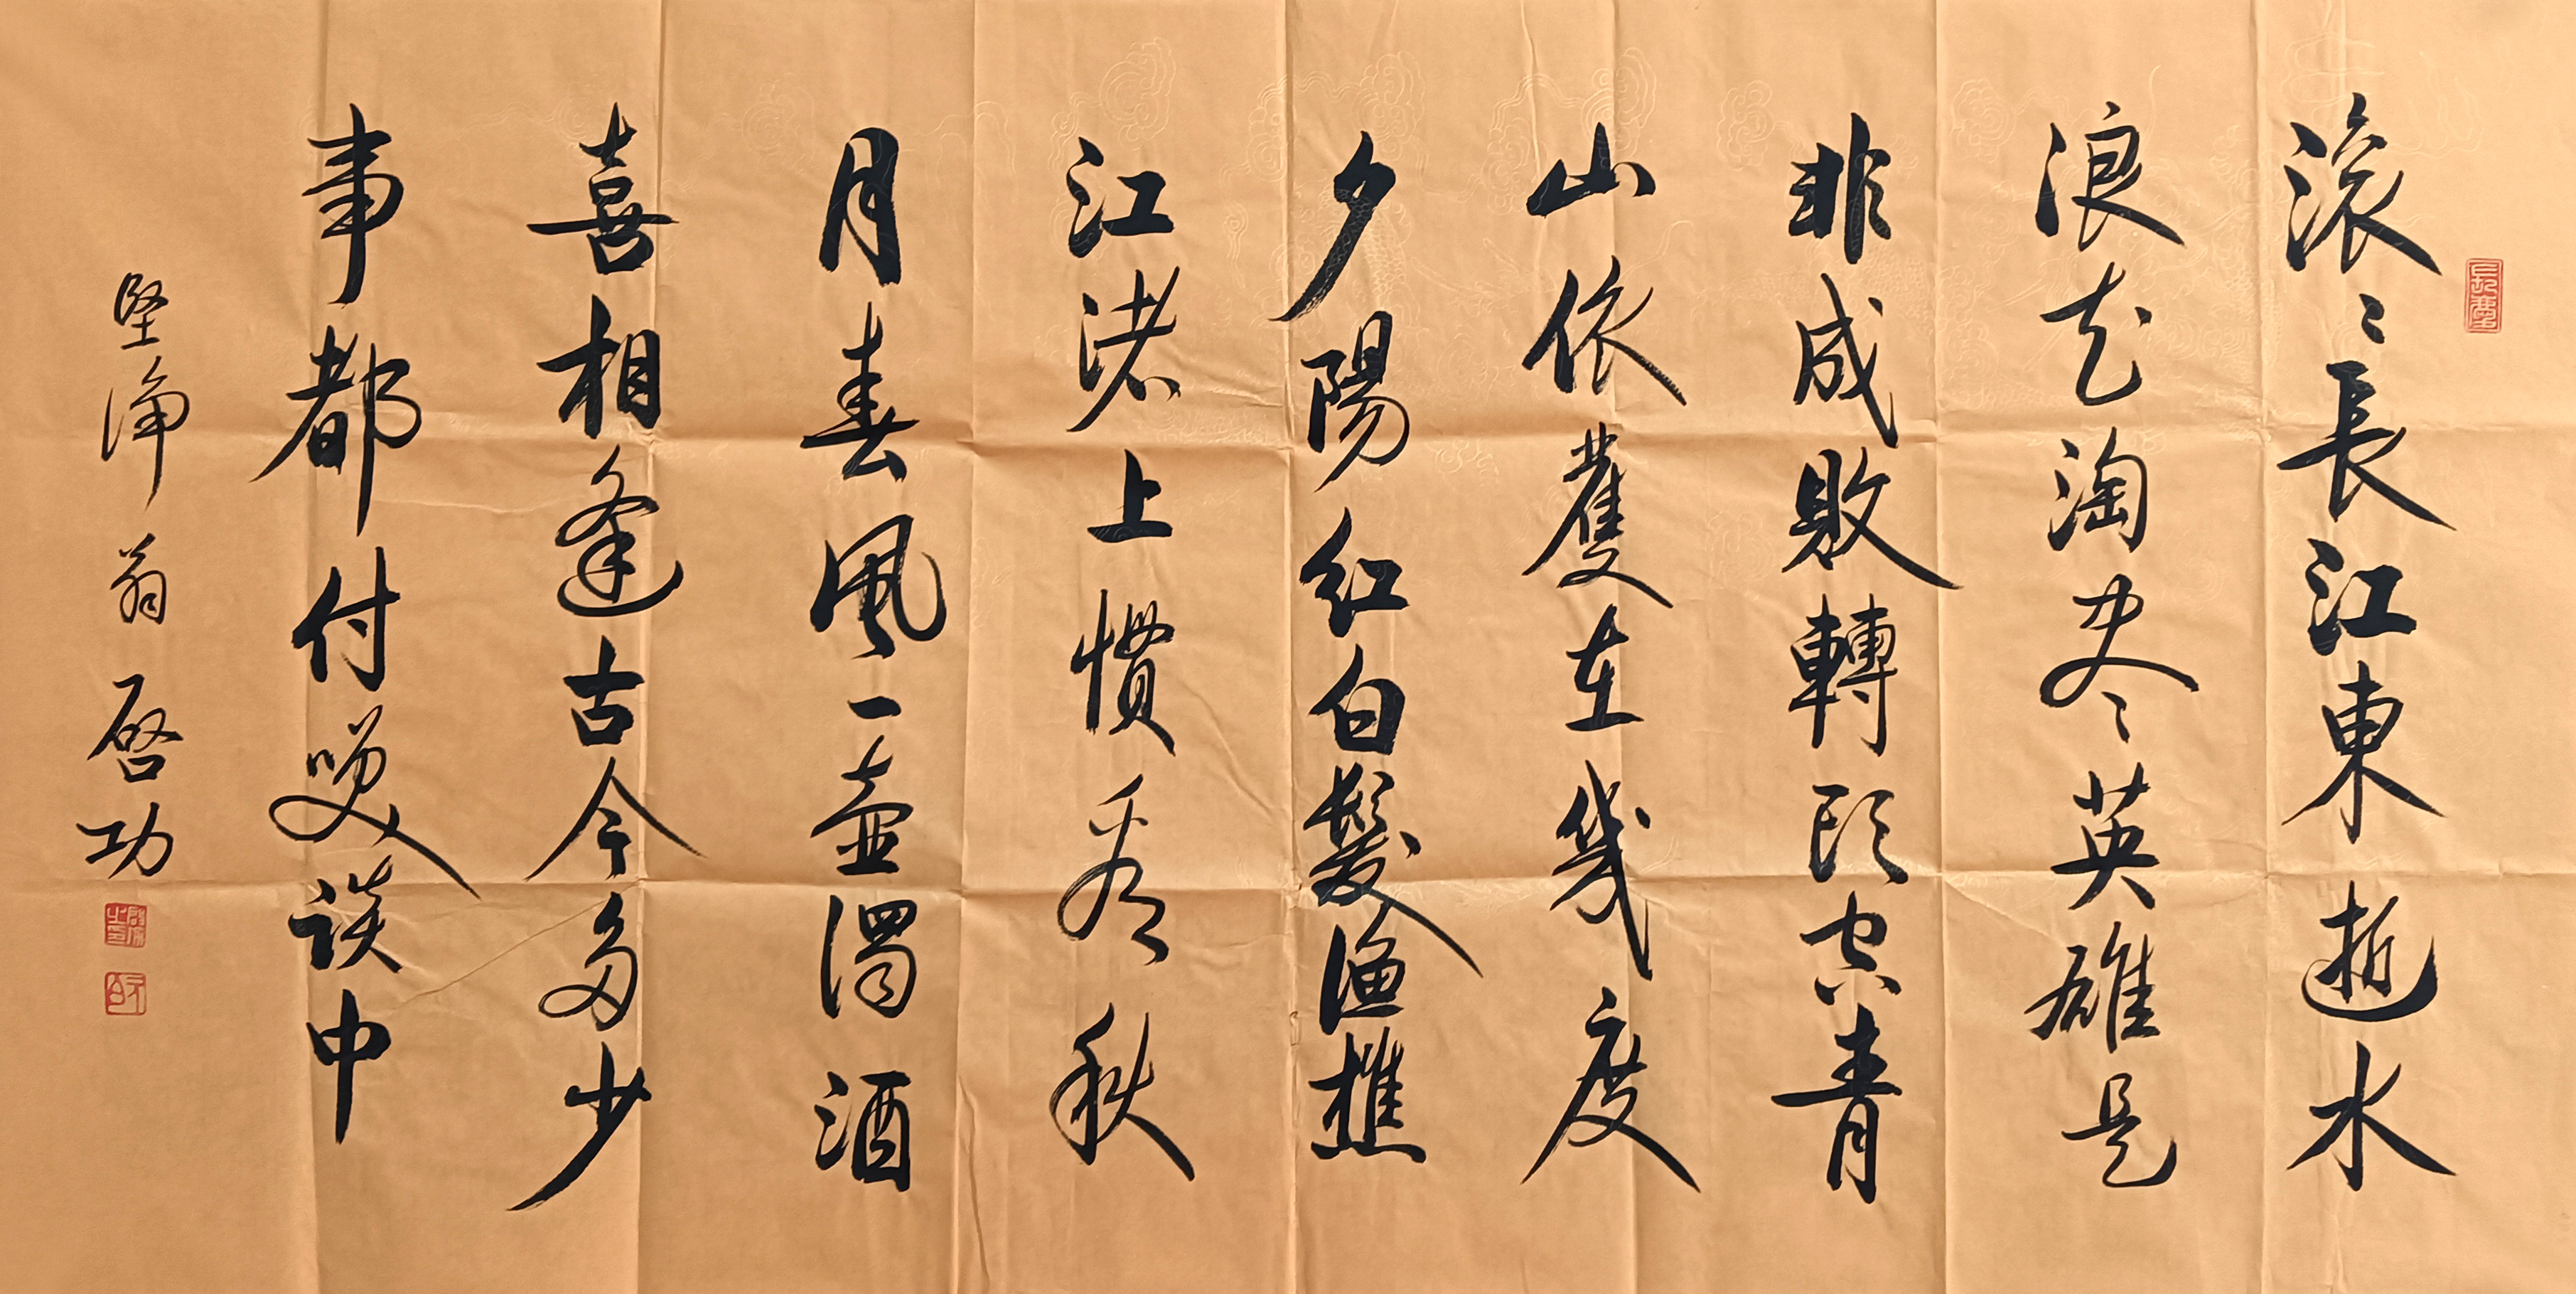 滚〻長江東逝水
浪花淘尽英雄是
非成敗轉頭空青
山依舊在幾度
夕陽紅白髮漁樵
江渚上慣看秋
月春風一壺濁酒
喜相逢古今多少
事都付咲談中
堅净翁 啓功